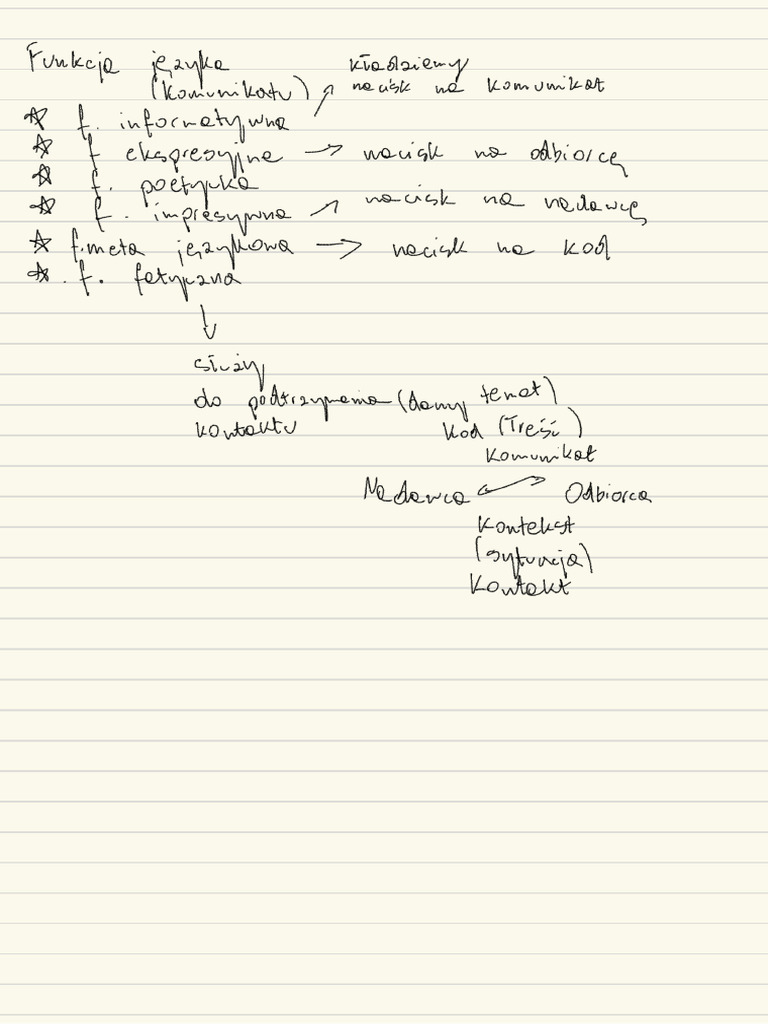 Funkcja języka
(komunikatu)
kładziemy
nacisk na komunikat
f. informatywna
f ekspresyjna → nacisk na odbiorcę
f. poetycka
f. impresywna → nacisk na nadawcę
f. meta językowa → nacisk na kod
f. fatyczna
↓
służy
do podtrzymania (dany temat)
kontaktu
kod (Treść)
komunikat
Nadawca ↔ Odbiorca
Kontekst
(sytuacja)
Kontakt